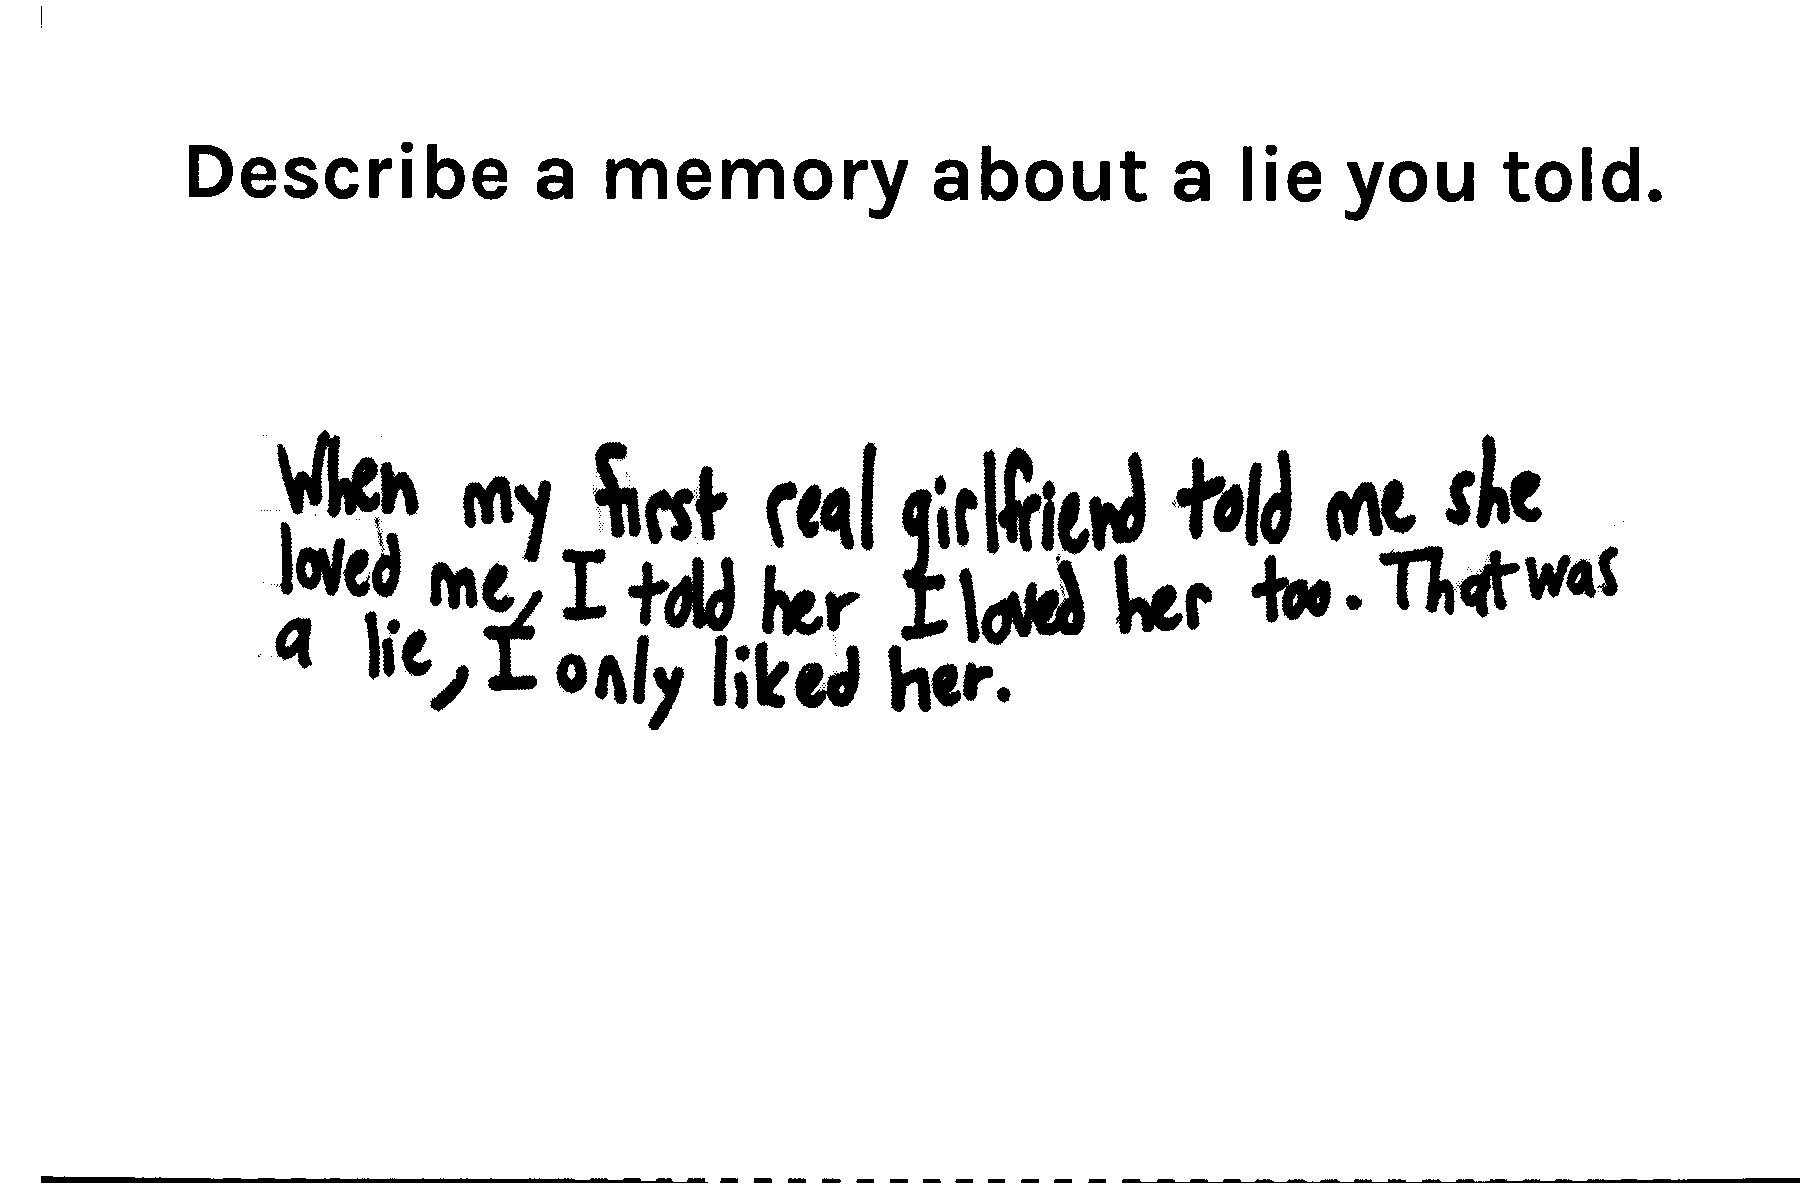 Describe a memory about a lie you told.
When my first real girlfriend told me she
loved me, I told her I loved her too. That was
a lie, I only liked her.